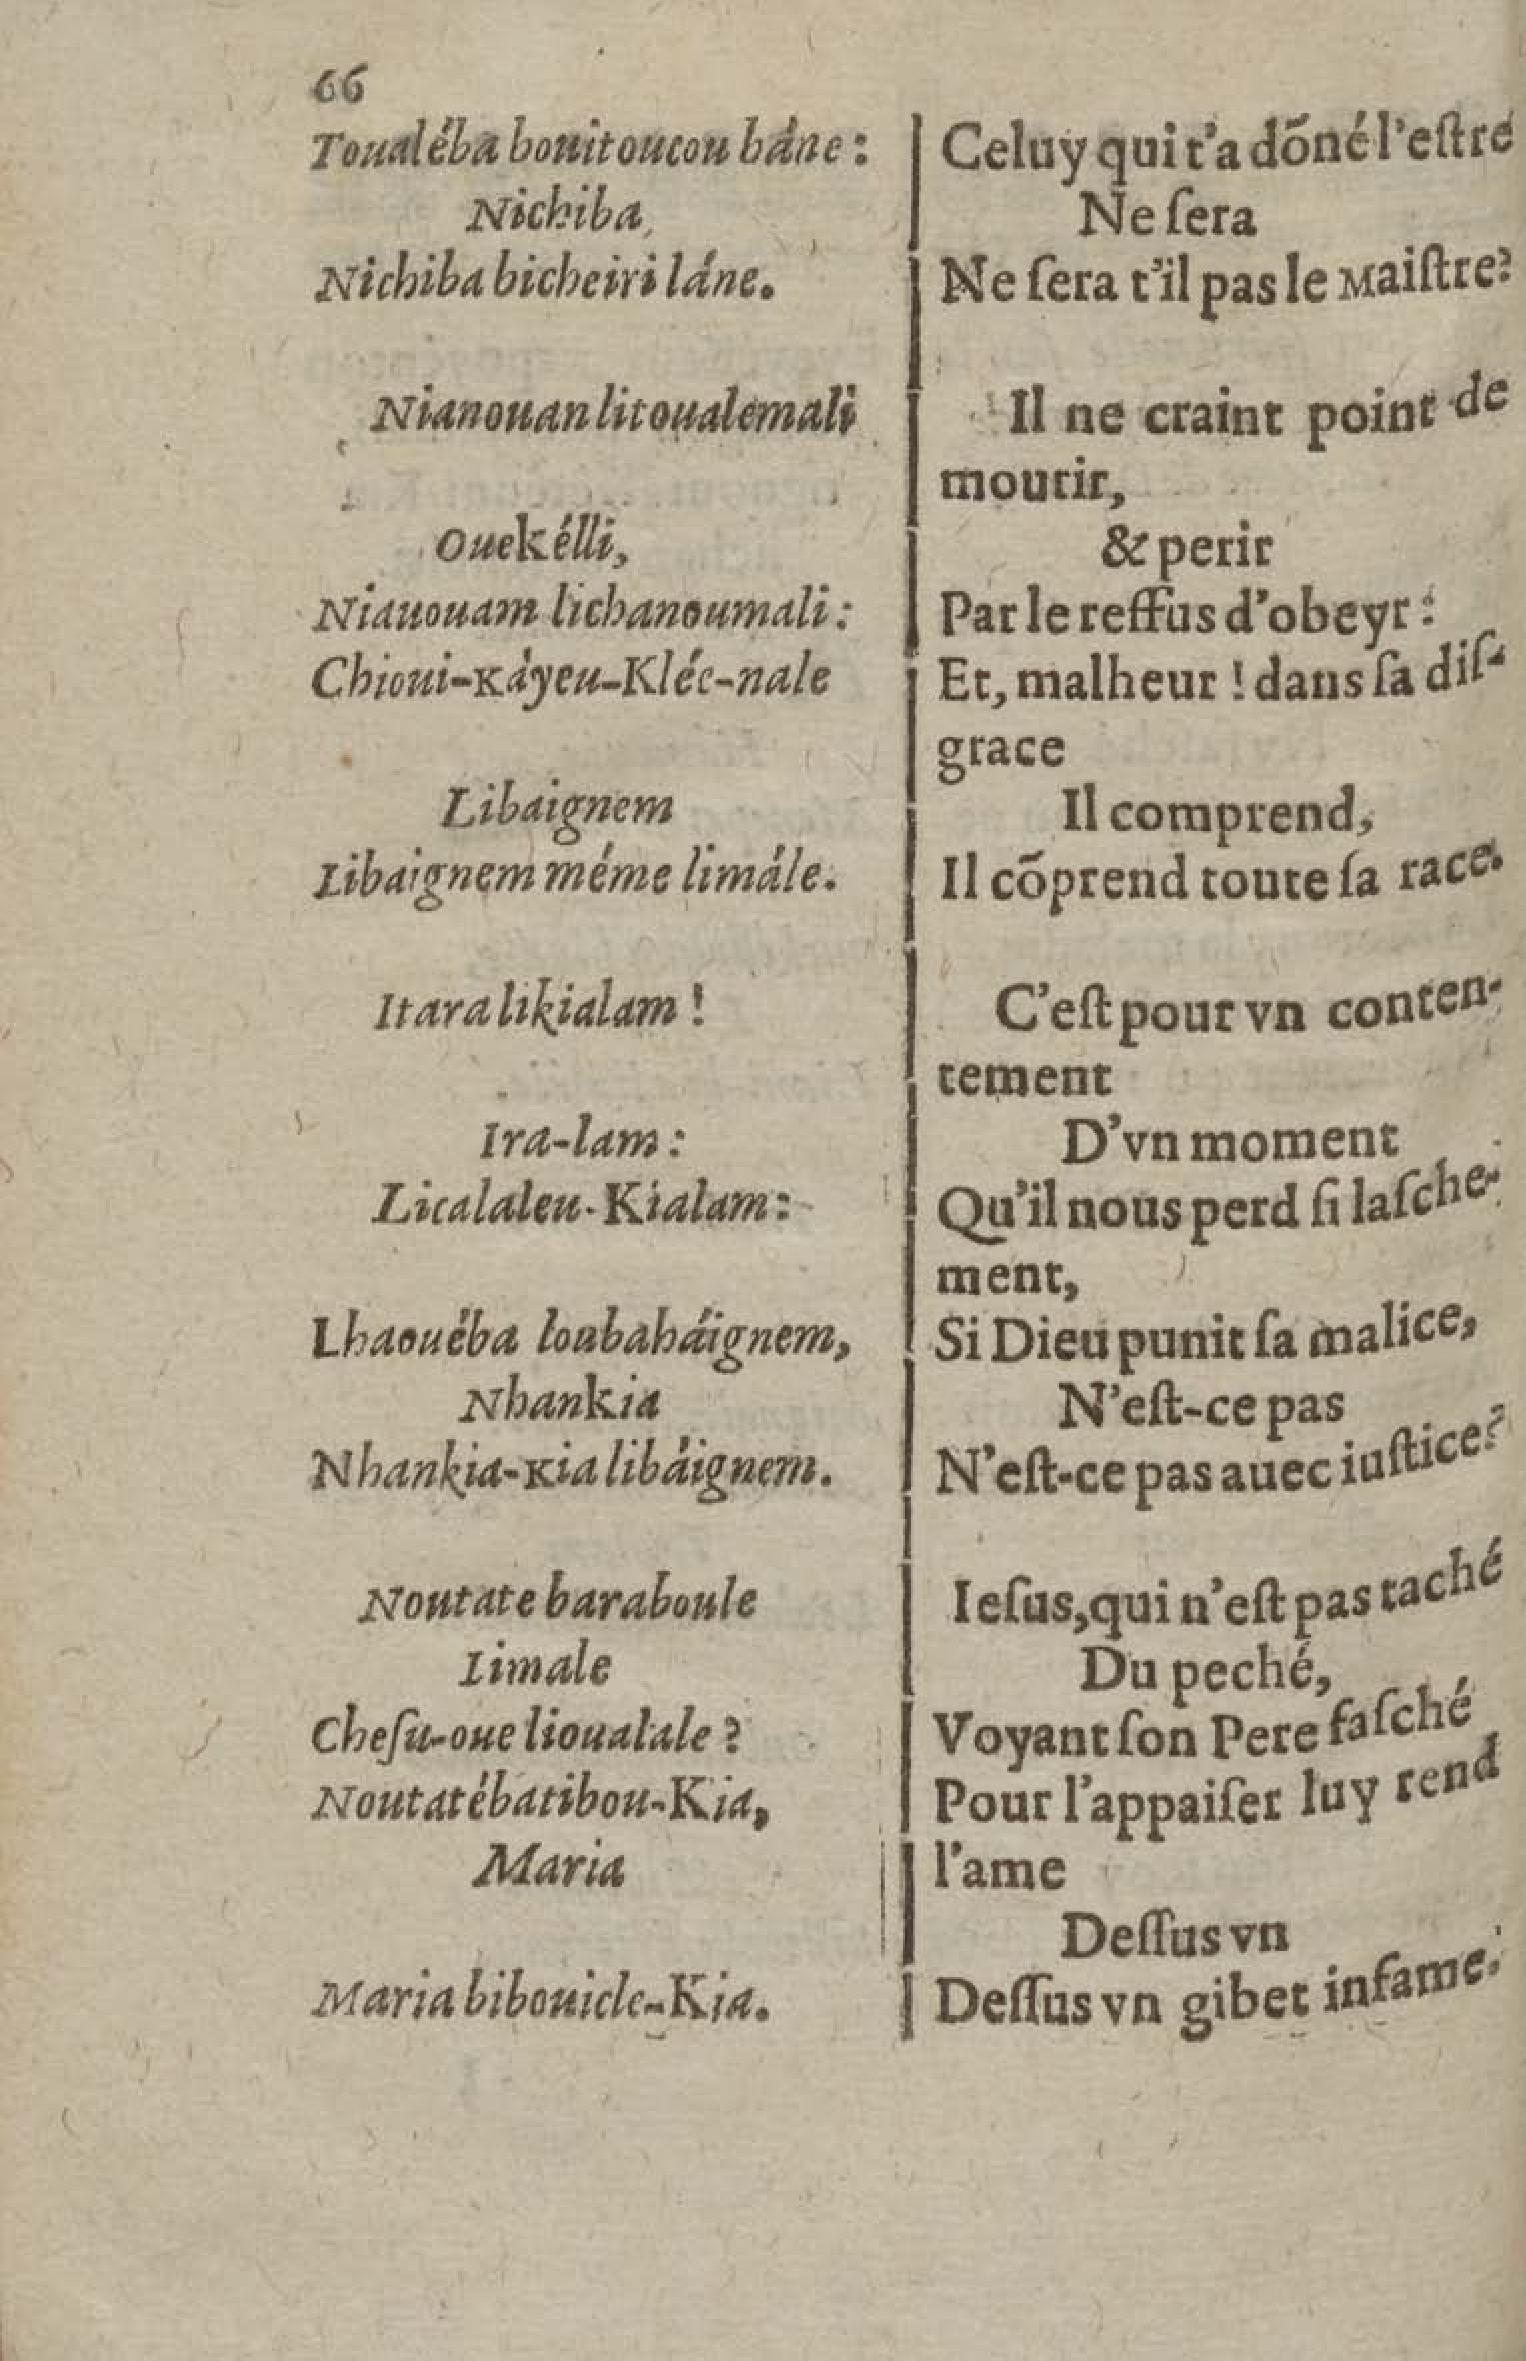 66
Toualéba bouitoucou báne :
Nichiba,
Nichiba bicheiri láne.
Nianouan litoualemali
Ouekélli,
Niauouam lichanoumali :
Chioui-Káyeu-Kléc-nale
Libaignem
Libaignem méme limále.
Itara likialam !
Ira-lam :
Licalaleu-Kialam :
Lhaouéba loubaháignem,
Nhankia
Nhankia-Kia libáignem.
Noutate baraboule
Limale
Cheſu-oue lioualale ?
Noutatébatibou-Kia,
Maria
Maria bibouicle-Kia.
Celuy qui t'a dõné l'eſtre
Ne ſera
Ne ſera t'il pas le Maiſtre?
Il ne craint point de
mourir,
& perir
Par le reffus d'obeyr :
Et, malheur ! dans ſa diſ-
grace
Il comprend,
Il cõprend toute ſa race.
C'eſt pour vn conten-
tement
D'vn moment
Qu'il nous perd ſi laſche-
ment,
Si Dieu punit ſa malice,
N'eſt-ce pas
N'eſt-ce pas auec iuſtice?
Ieſus, qui n'eſt pas taché
Du peché,
Voyant ſon Pere faſché
Pour l'appaiſer luy rend
l'ame
Deſſus vn
Deſſus vn gibet infame.